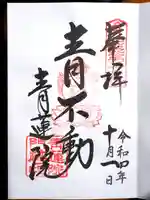 奉拝
令和四年
十月一日
青不動
青蓮院